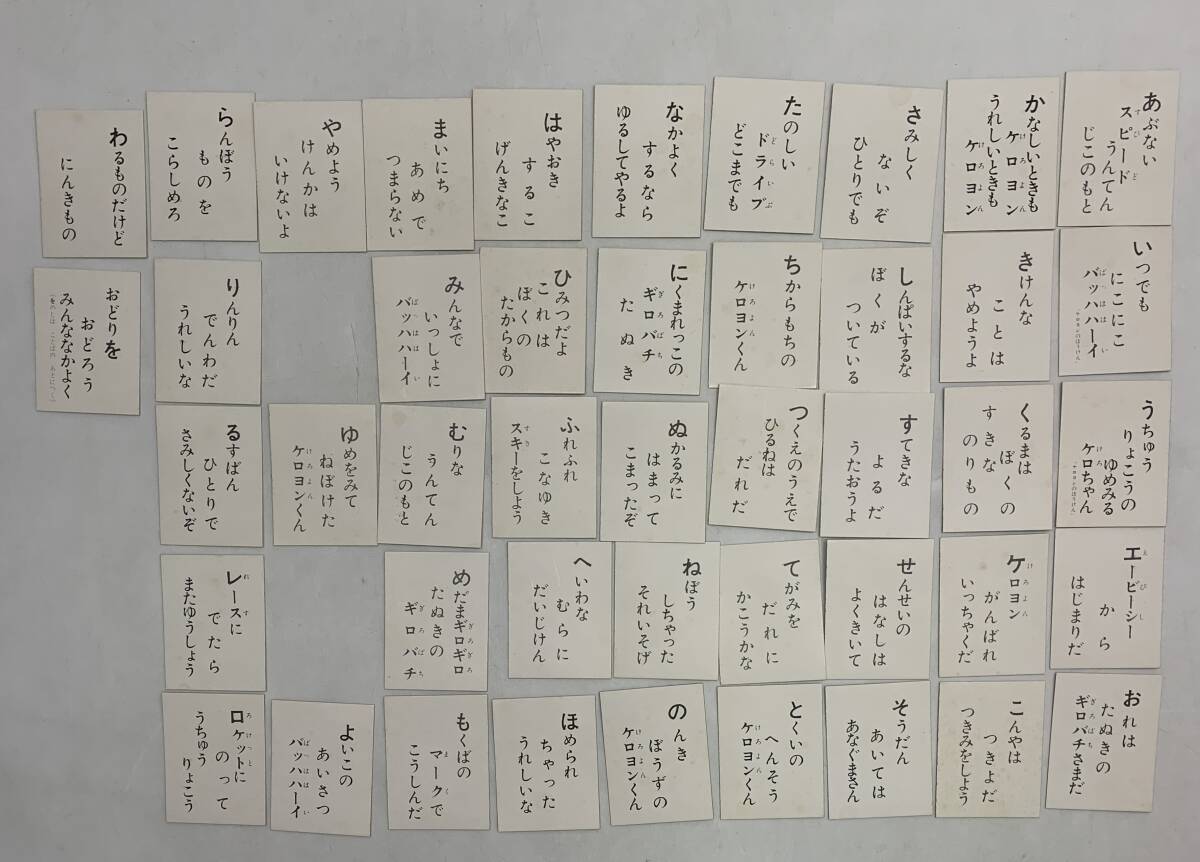 あぶない
スピード
うんてん
じこのもと
いつでも
にこにこ
バッハハーイ
うちゅう
りょこうの
ゆめみる
ケロちゃん
エービーシー
から
はじまりだ
おれは
たぬきの
ギロバチさまだ
かなしいときも
ケロヨン
うれしいときも
ケロヨン
きけんな
ことは
やめようよ
くるまは
ぼくの
すきな
のりもの
ケロヨン
がんばれ
いっちゃくだ
こんやは
つきよだ
つきみをしよう
さみしく
ないぞ
ひとりでも
しんぱいするな
ぼくが
ついている
すてきな
よるだ
うたおうよ
せんせいの
はなしは
よくきいて
そうだん
あいては
あなぐまさん
たのしい
ドライブ
どこまでも
ちからもちの
ケロヨンくん
つくえのうえで
ひるねは
だれだ
てがみを
だれに
かこうかな
とくいの
へんそう
ケロヨンくん
なかよく
するなら
ゆるしてやるよ
にくまれっこの
ギロバチ
たぬき
ぬかるみに
はまって
こまったぞ
ねぼう
しちゃった
それいそげ
のんき
ぼうずの
ケロヨンくん
はやおき
するこ
げんきなこ
ひみつだよ
これは
ぼくの
たからもの
ふれふれ
こなゆき
スキーをしよう
へいわな
むらに
だいじけん
ほめられ
ちゃった
うれしいな
まいにち
あめで
つまらない
みんなで
いっしょに
バッハハーイ
むりな
うんてん
じこのもと
めだまギロギロ
たぬきの
ギロバチ
もくばの
マークで
こうしんだ
やめよう
けんかは
いけないよ
ゆめをみて
ねぼけた
ケロヨンくん
よいこの
あいさつ
バッハハーイ
らんぼう
ものを
こらしめろ
りんりん
でんわだ
うれしいな
るすばん
ひとりで
さみしくないぞ
レースに
でたら
またゆうしょう
ロケットに
のって
うちゅう
りょこう
わるものだけど
にんきもの
おどりを
おどろう
みんななかよく